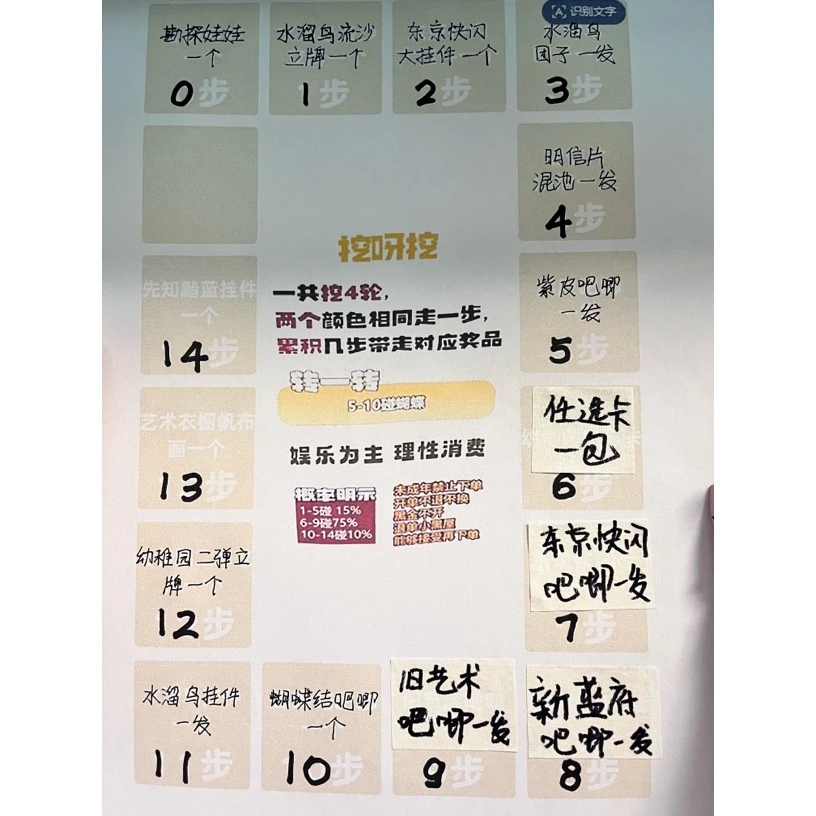 识别文字
勘探娃娃
一个
0步
水溜鸟流沙
立牌一个
1步
东京快闪
大挂件一个
2步
水溜鸟
团子一发
3步
明信片
混池一发
4步
紫皮吧唧
一发
5步
任选卡
一包
6步
东京快闪
吧唧一发
7步
新蓝府
吧唧一发
8步
旧艺术
吧唧一发
9步
蝴蝶结吧唧
一个
10步
水溜鸟挂件
一发
11步
幼稚园二弹立
牌一个
12步
艺术衣橱帆布
画一个
13步
先知黯蓝挂件
一个
14步
挖呀挖
一共挖4轮,
两个颜色相同走一步,
累积几步带走对应奖品
转一转
5-10碰蝴蝶
娱乐为主 理性消费
概率明示
1-5碰 15%
6-9碰75%
10-14碰10%
未成年禁止下单
开单不退不换
黑名不开
退单小黑屋
能够接受再下单